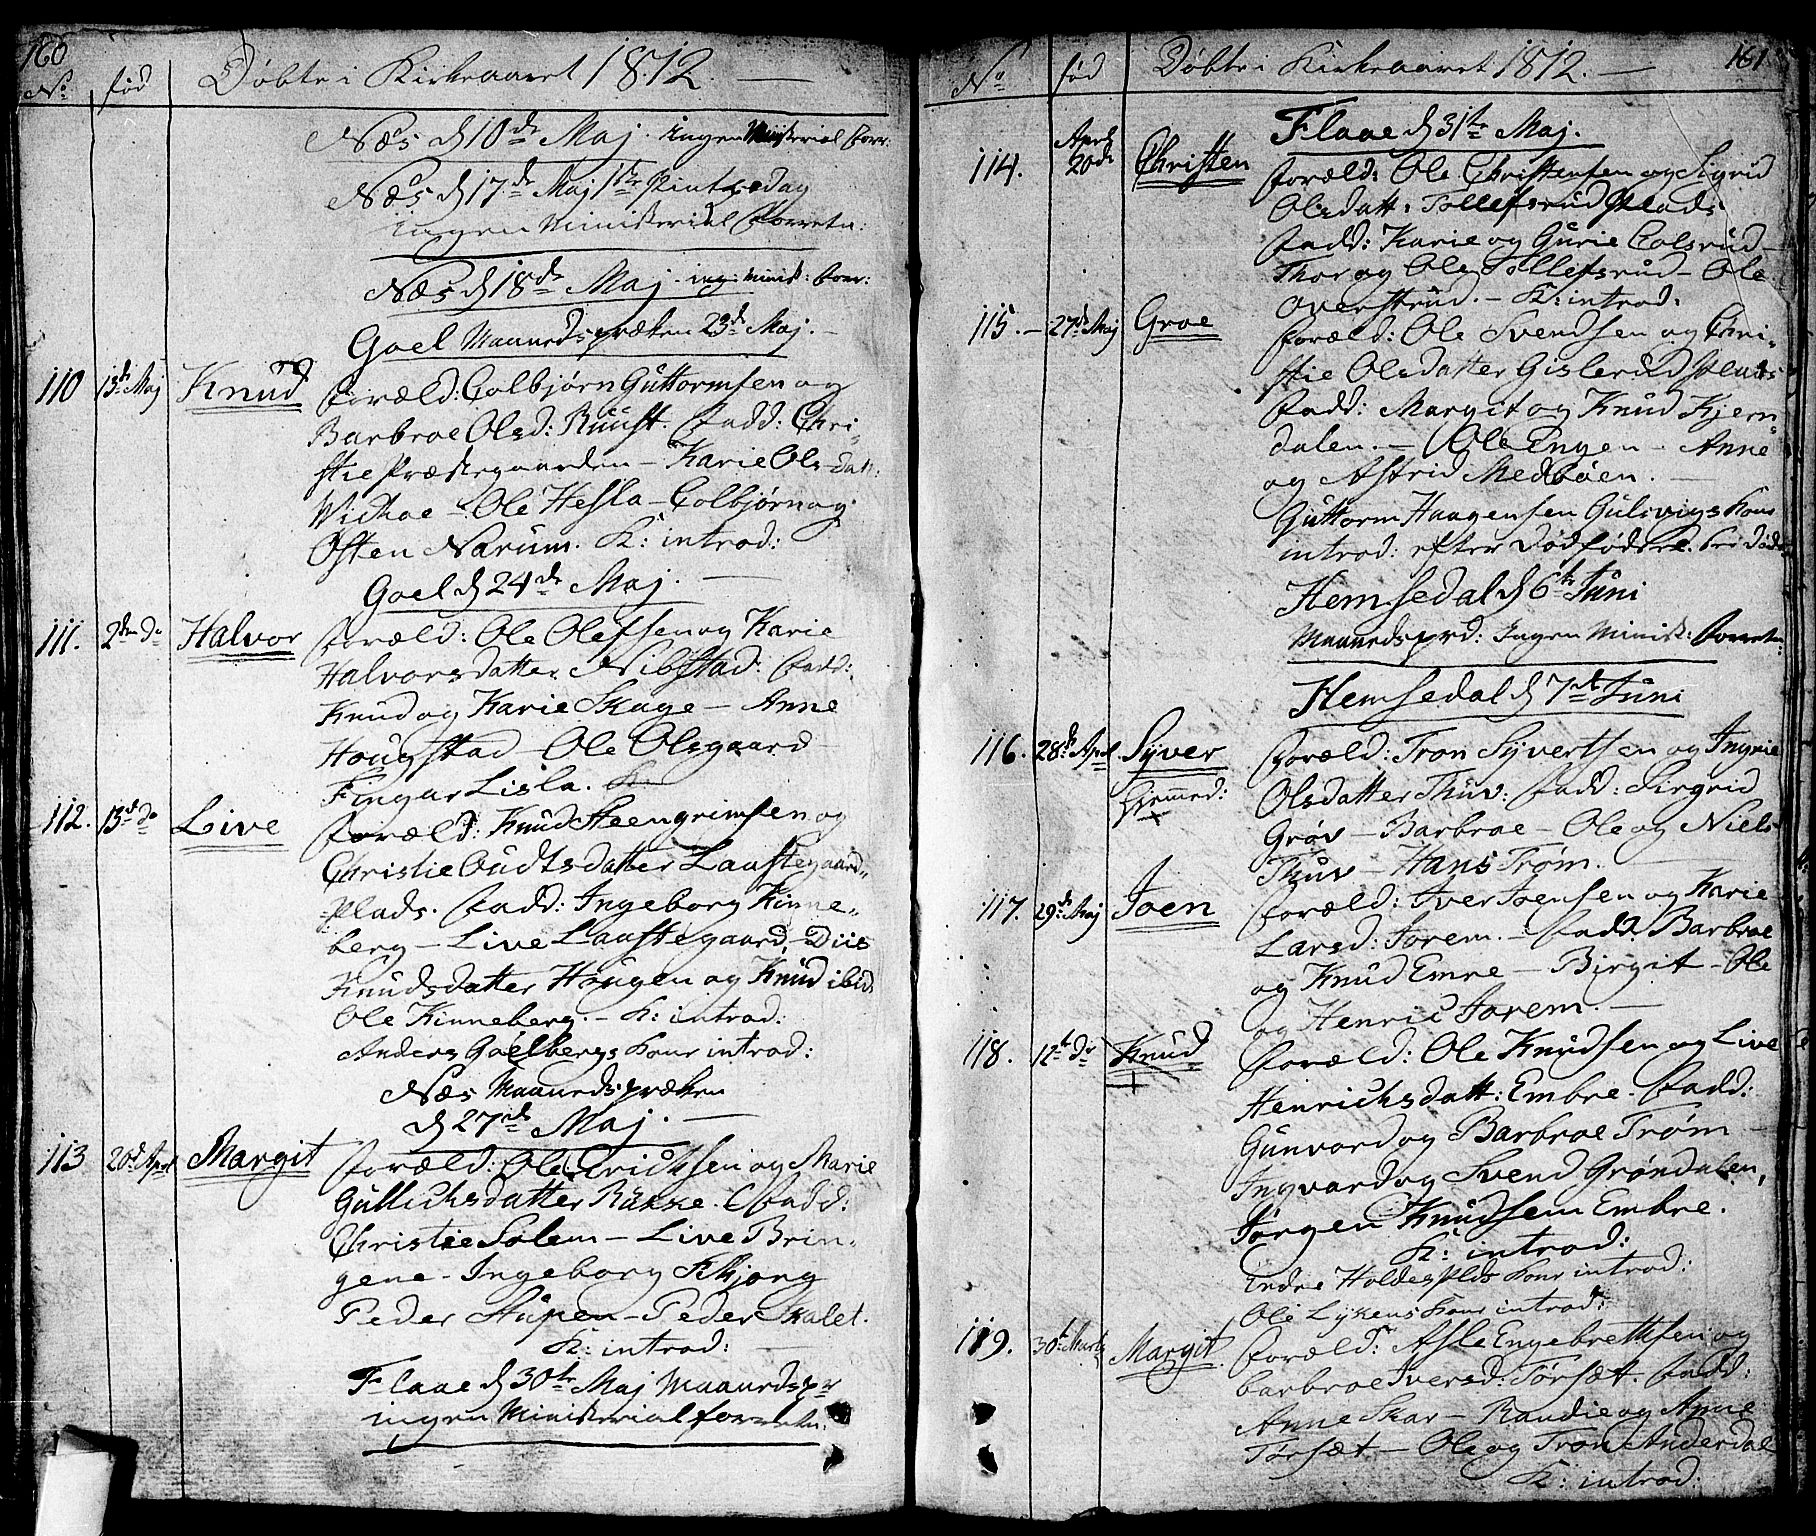 160
No. fød Døbte i Kirkeaaret 1812. —
Næs d 10de Maj. Ingen Ministerial Forr:
Næs d 17de Maj 1ste Pintsedag
Ingen Ministerial Forretn:
Næs d 18de Maj. ing: Minist: Forr:
Goel Maanedspræken 23de Maj. —
110 13de Maj Knud Foræld: Colbjørn Guttormsen og
Barbroe Olsd: Ruust. Fadd: Chri-
stie Præstegaarden – Karie Olsdatt:
Wichoe – Ole Hesla – Colbjørn og
Østen Narum. K: introd:
Goel d 24de Maj. —
111. 2den do Halvor Foræld: Ole Olefsen og Karie
Halvorsdatter Nibstad: Fadd:
Knud og Karie Skage – Anne
Hougstad – Ole Olsgaard –
Fingar Lisla.
112. 13de do Live Foræld: Knud Steengrimsen og
Christie Oudtsdatter Laustegaard-
Plads. Fadd: Ingeborg Kinne-
berg – Live Laustegaard, – Diis
Knudsdatter Hougen og Knud ibid:
Ole Kinneberg. – K: introd:
Anders Goelbergs Kone introd:
Næs Maanedspræken
d 27de Maj. —
113 20de April Margit Foræld: Ole Erichsen og Marie
Gullichsdatter Rukke. Fadd:
Christie Solem – Live Brin-
gene – Ingeborg Kbjorg
Peder Stupen – Peder Skalet.
K: introd:
Flaae d 30te Maj Maanedspr
ingen Ministerial forretn:
161
No fød Døbte i Kirkeaaret 1812. —
Flaae d 31te Maj.
114. April 20de Christen Foræld: Ole Christensen og Sigrid
Olsdatt: Tollefsrud Plads.
Fadd: Karie og Gurie Colsrud –
Thor og Ole Tollefsrud – Ole
Overstrud. – K: introd:
115. – 27de Maj Groe Foræld: Ole Svendsen og Chri-
stie Olsdatter Gislerud Plads
Fadd: Margit og Knud Kjern-
dalen. – Ole Engen – Anne
og Astrid Medbøen. —
Guttorm Haagensen Gulsvigs Kone
introd: efter Dødfødsel.
Hemsedal d 6te Juni
Maanedspræd: Ingen Minist: Forretn:
Hemsedal d 7de Juni
116. 28de April Syver Foræld: Tron Syvertsen og Ingrie
Hjemmed: Olsdatter Thuv: Fadd: Sirgrid
Grøv – Barbroe – Ole og Niels
Thuv – Hans Trøm. —
117. 29de Maj Joen Foræld: Iver Joensen og Karie
Larsd: Jorem. – Fadd: Barbroe
og Knud Emre – Birgit – Ole
og Henric Jorem. —
118. 12te do Knud Foræld: Ole Knudsen og Live
Henrichsdatt: Embre. Fadd:
Gunvord og Barbroe Trøm –
Ingvard og Svend Grøndalen,
Jørgen Knudsen Embre.
K: introd:
Endre Holdes Plds Kone introd:
Ole Lykens Kone introd:
119. 30te Marts Margit Foræld: Asle Engebrettsen og
barbroe Iversd: Torsæt. Fadd:
Anne Skar – Randie og Anne
Torsæt – Ole og Tron Anderdal
K: introd: